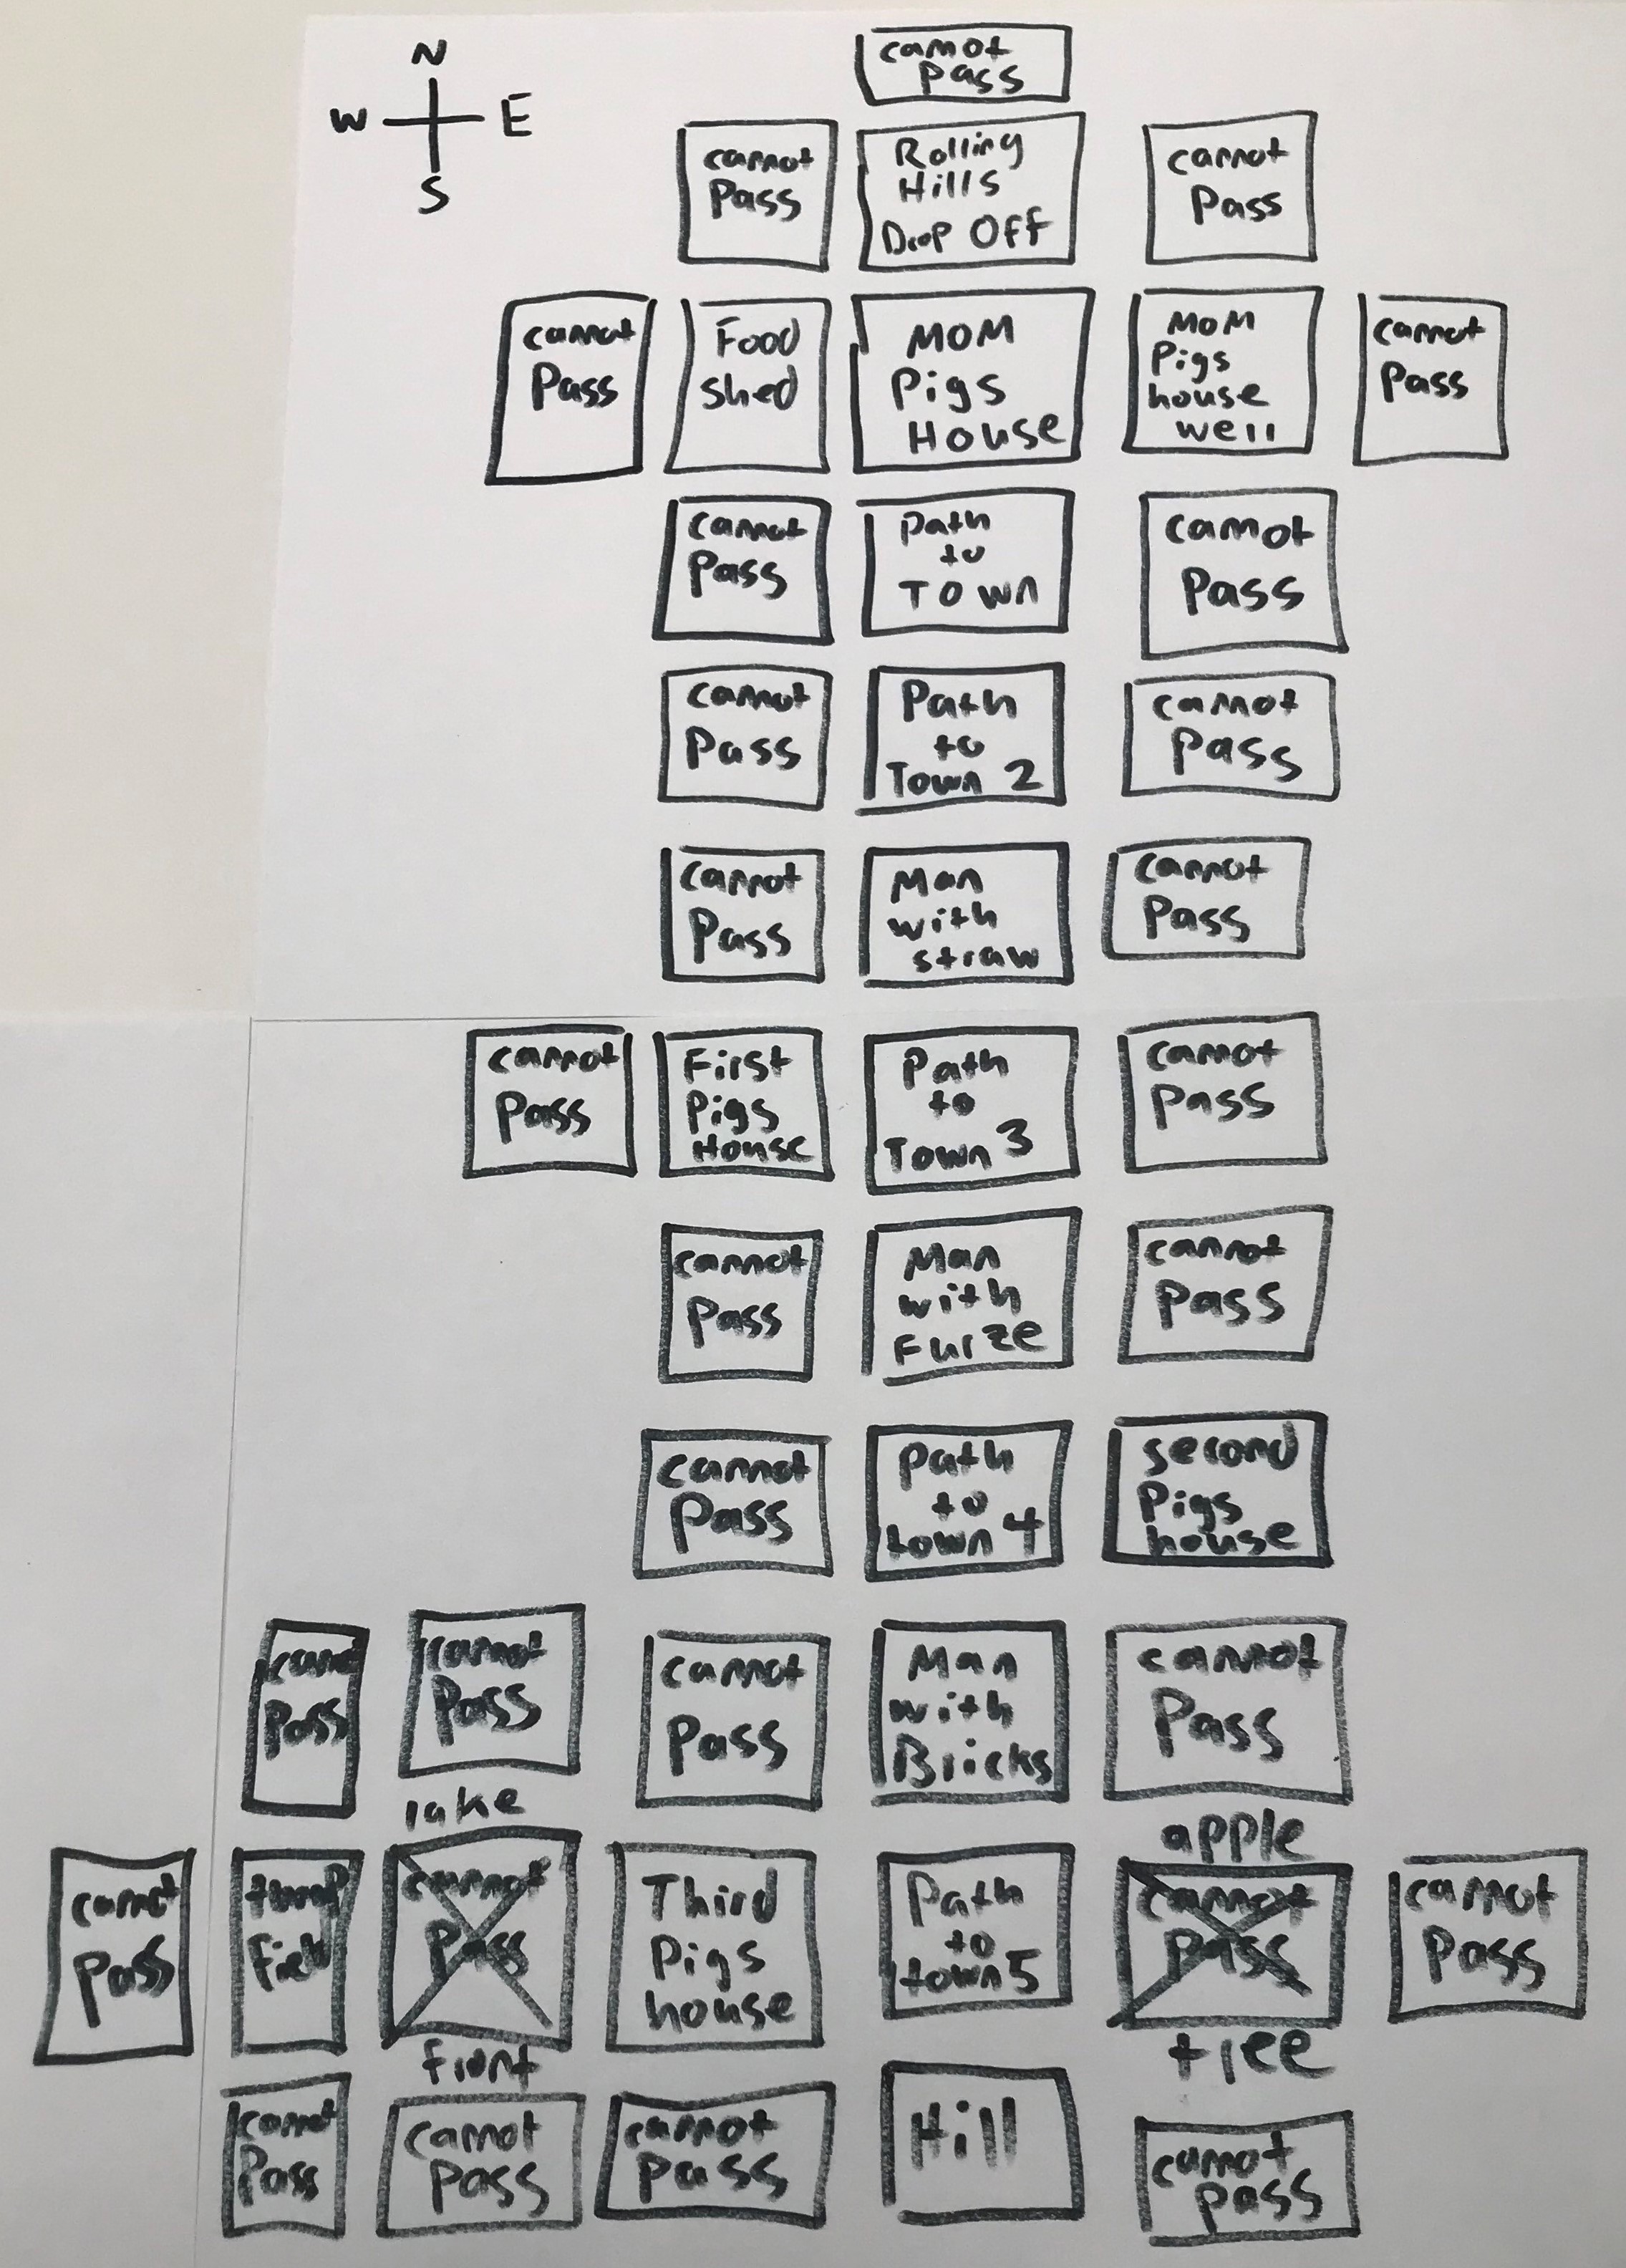 N
W E
S
cannot
pass
cannot
Pass
Rolling
Hills
Drop Off
cannot
Pass
cannot
Pass
Food
shed
MOM
Pigs
House
MOM
Pigs
house
well
cannot
Pass
cannot
Pass
path
to
TOWN
cannot
Pass
cannot
Pass
Path
to
Town 2
cannot
Pass
cannot
Pass
Man
with
straw
cannot
Pass
cannot
Pass
First
Pigs
House
Path
to
Town 3
cannot
Pass
cannot
Pass
Man
with
Furze
cannot
Pass
cannot
Pass
Path
to
town 4
second
Pigs
house
Pass
cannot
Pass
cannot
Pass
Man
with
Bricks
cannot
Pass
lake
apple
cannot
Pass
Field
cannot
Pass
Third
Pigs
house
Path
to
town 5
cannot
Pass
cannot
Pass
front
tree
cannot
Pass
cannot
Pass
cannot
Pass
Hill
cannot
pass